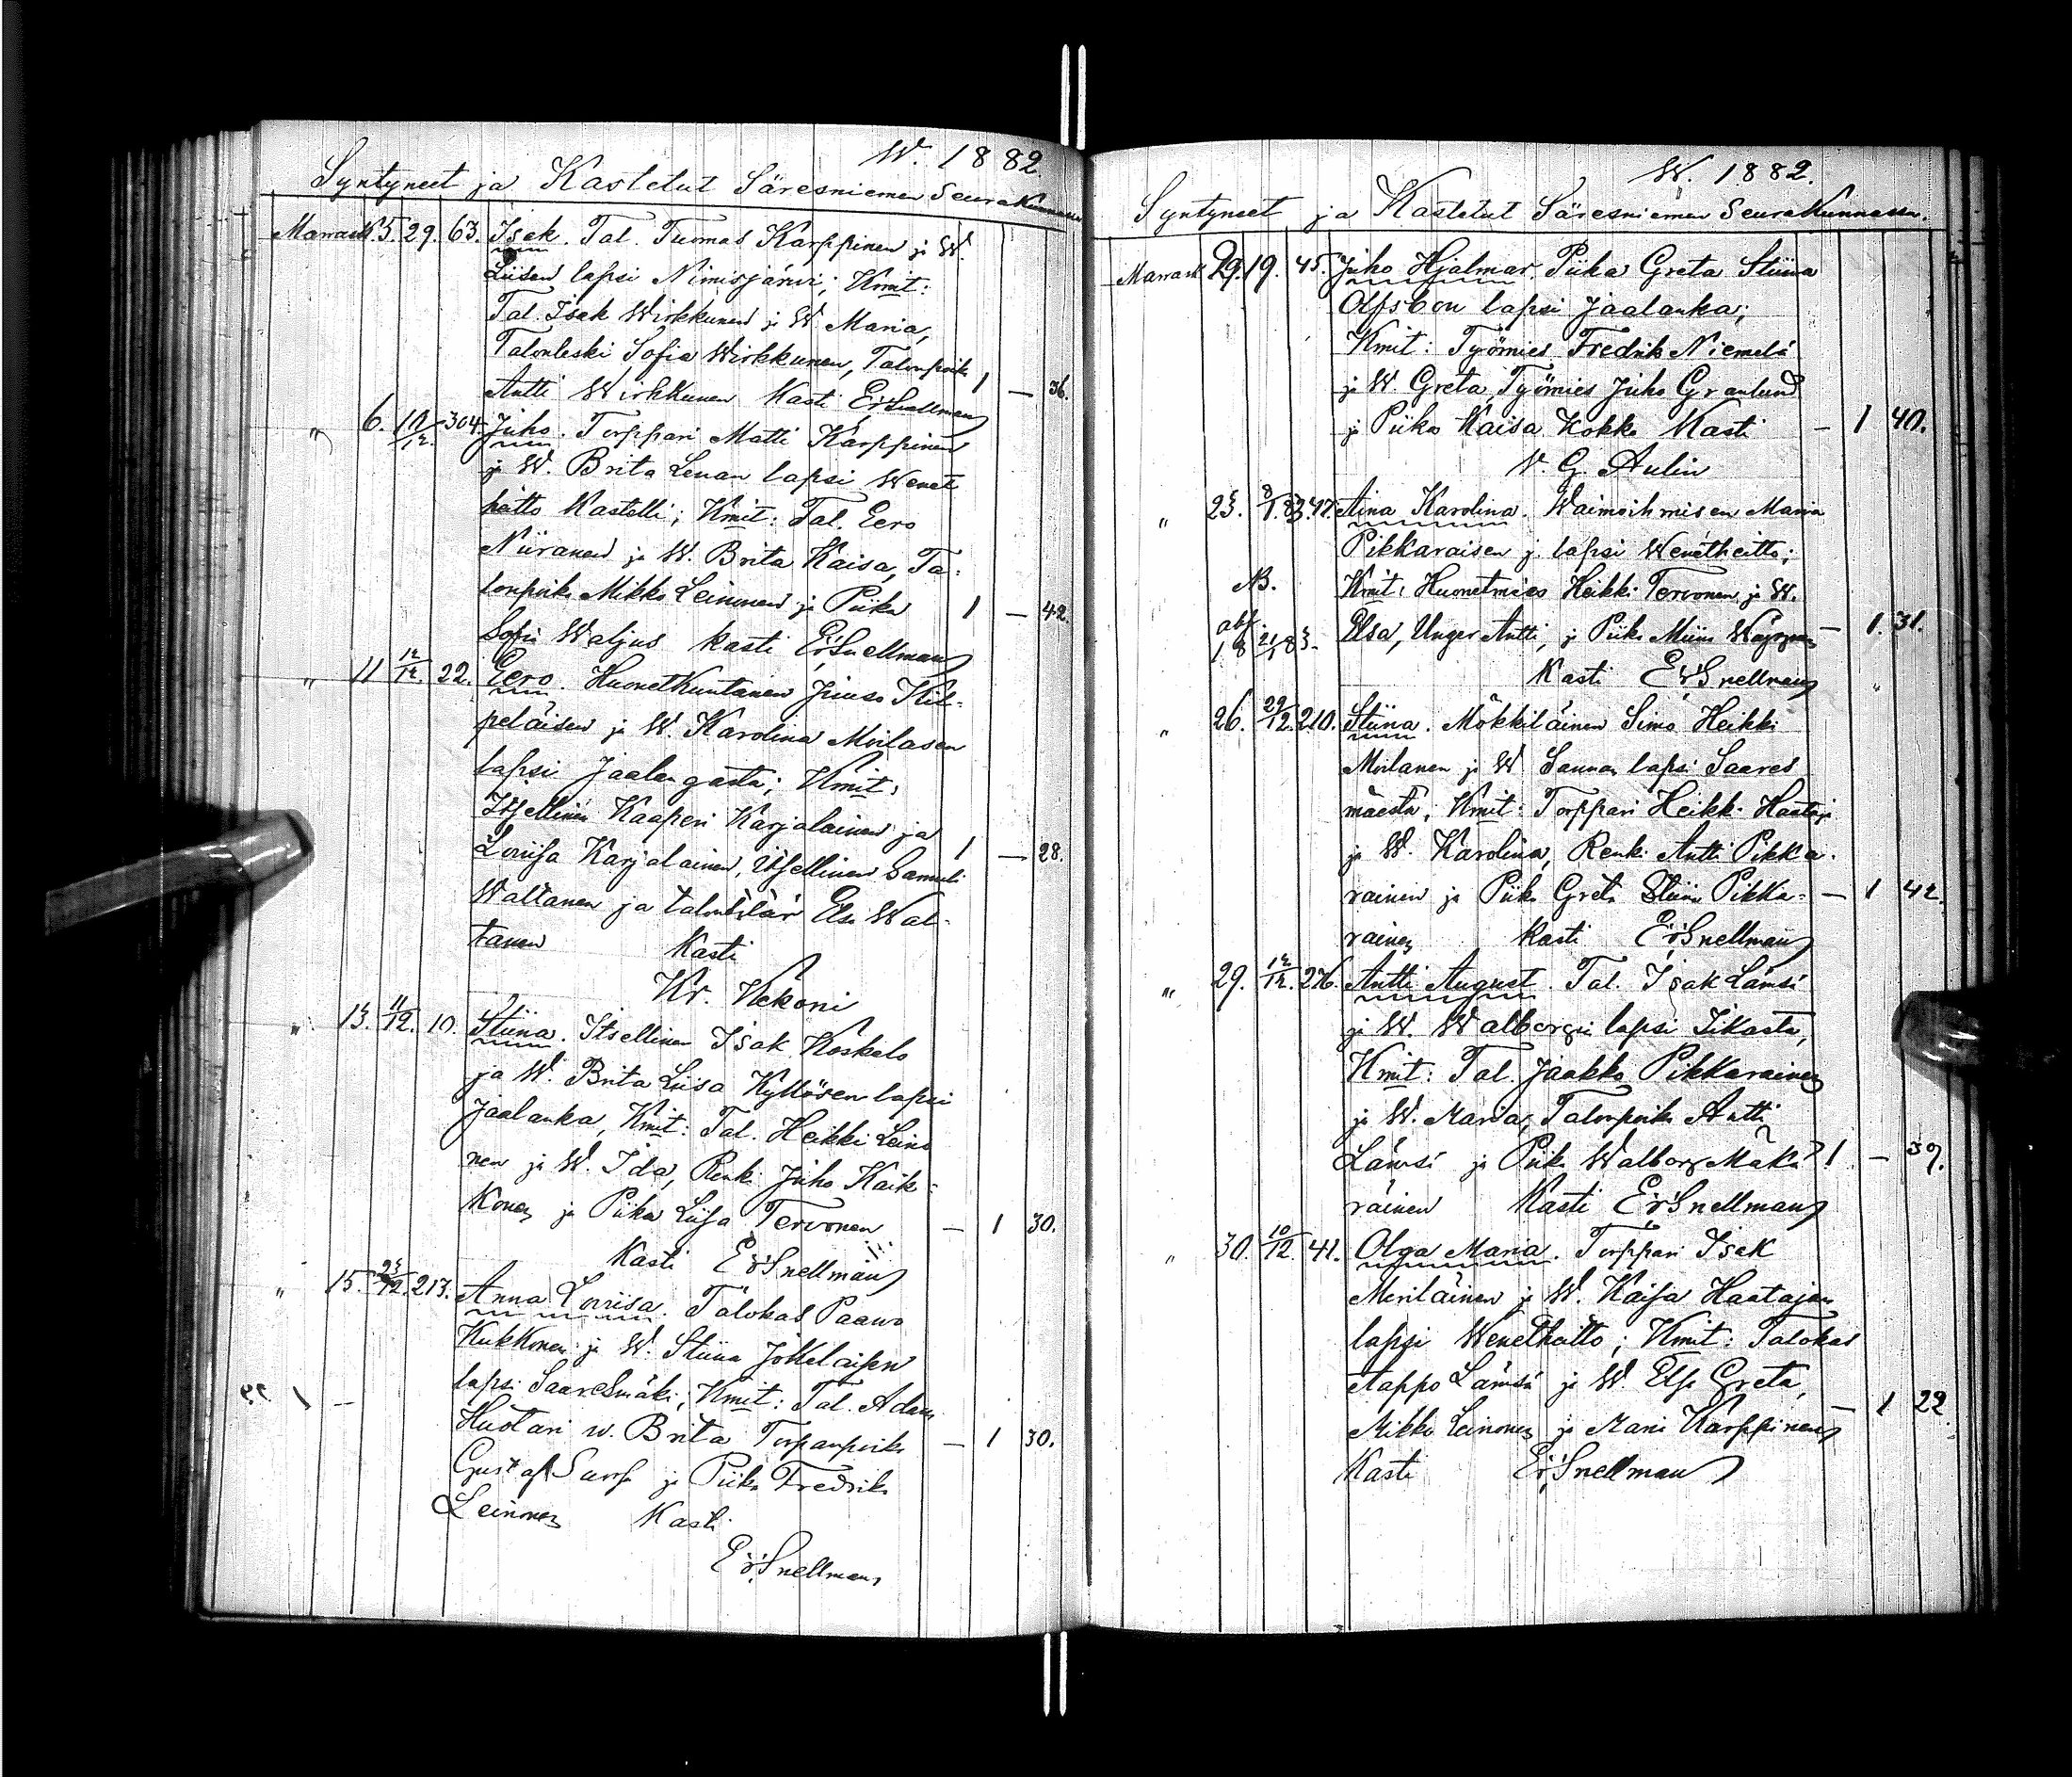 W. 1882.
Syntyneet ja Kastetut Säresniemen Seurakunnassa
Marrask. 5. 29. 63. Isak. Tal. Tuomas Karppinen ja W.
Liisen lapsi Nimisjärvi; Kmit:
Tal. Isak Wirkkunen ja W. Maria,
Talonleski Sofia Wirkkunen, Talonpoika
Antti Wirkkunen Kasti E. Snellman 1 — 36.
" 6. 10/12. 304. Juho. Torppari Matti Karppinen
ja W. Brita Leenan lapsi Wenet
heitto Kastelli; Kmit: Tal. Eero
Niiranen ja W. Brita Kaisa, Ta-
lonpoika Mikko Leinonen ja Piika 1 — 42.
Sofia Waljus kasti E. Snellman
" 11 12/12. 22. Eero. Huonetkuntanen Juuso Kil-
peläisen ja W. Karolina Moilasen
lapsi Jaalangasta; Kmit:
Itsellinen Kaaperi Karjalainen ja
Lovisa Karjalainen, Itsellinen Samuli 1 — 28.
Waltanen ja talontytär Elsa Wal-
tanen Kasti
Kr. Kekoni
" 13. 11/12. 10. Stiina. Itsellinen Isak Koskelo
ja W. Brita Liisa Kyllösen lapsi
Jaalanka, Kmit: Tal. Heikki Leino
nen ja W. Ida, Renki Juho Kaik-
konen ja Piika Liisa Tervonen — 1 30.
Kasti E. Snellman
" 15. 23/12. 213. Anna Lovisa. Talokas Paavo
Kukkonen ja W. Stiina Jokelaisen
lapsi Saaresmäki; Kmit: Tal. Adam
Huotari w. Brita Torpanpoika — 1 30.
Gustaf ja Piika Fredrika
Leinonen Kasti
E. Snellman
W. 1882.
Syntyneet ja Kastetut Säresniemen Seurakunnassa.
Marrask. 29. 19. 45. Juho Hjalmar. Piika Greta Stiina
Olfsbon lapsi Jaalanka;
Kmit: Työmies Fredrik Niemelä
ja W. Greta, Työmies Juho Granlund
ja Piika Kaisa Kokko Kasti — 1 40.
V. G. Aulin
" 25. 8/1.83. 47. Aina Karolina. Waimoihmisen Maria
Pikkaraisen j. lapsi Wenetheitto;
NB. Kmit: Huonetmies Heikki Tervonen ja W.
abf. 18 21/1 83. Elsa, Unger Antti, ja Piika Miina — 1. 31.
Kasti E. Snellman
" 26. 29/12. 210. Stiina. Mökkiläinen Simo Heikki
Moilanen ja W Sannan lapsi Saares
mäestä; Kmit: Torppari Heikki Haataja
ja W. Karolina, Renki Antti Pikka-
rainen ja Piika Greta Stiina Pikka- — 1 42.
rainen kasti E. Snellman
" 29. 12/12. 276. Antti August. Tal. Isak Lämsä
ja W. Walborgin lapsi Iikasta,
Kmit: Tal. Jaakko Pikkarainen
ja W. Maria, Talonpoika Antti
Lämsä ja Piika Walborg Mäkä- 1 — 39.
räinen Kasti E. Snellman
" 30. 10/12. 41. Olga Maria. Torppari Isak
Meriläinen ja W. Kaisa Haatajan
lapsi Wenetheitto; Kmit: Talokas
Aappo Lämsä ja W. Elsa Greta,
Mikko Leinonen ja Maria Karppinen — 1 22
Kasti E. Snellman